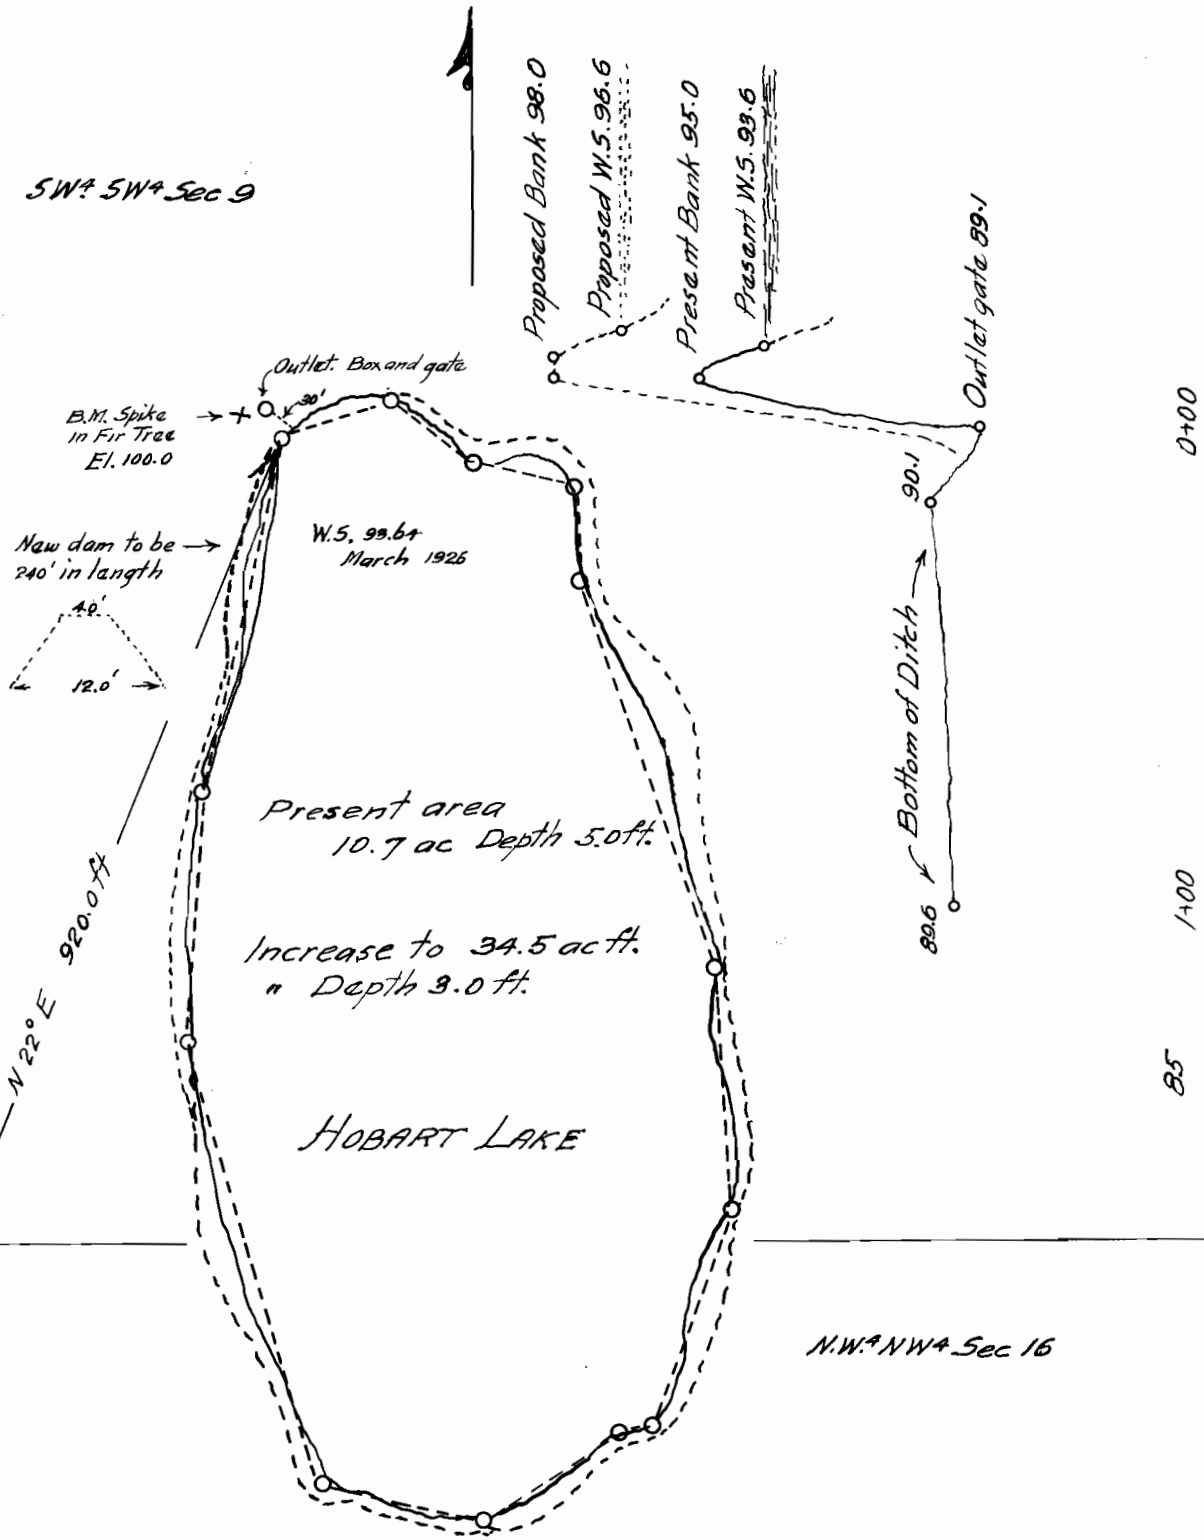 SW⁴ SW⁴ Sec 9
Proposed Bank 98.0
Proposed W.S. 96.6
Present Bank 95.0
Present W.S. 93.6
Outlet gate 89.1
0+00
Outlet Box and gate
30'
B.M. Spike
in Fir Tree
El. 100.0
90.1
W.S. 93.64
March 1926
New dam to be
240' in length
4.0'
12.0'
Bottom of Ditch
89.6
1+00
85
Present area
10.7 ac Depth 5.0 ft.
Increase to 34.5 ac ft.
" Depth 3.0 ft.
N 22° E 920.0 ft
HOBART LAKE
N.W.⁴ NW⁴ Sec 16